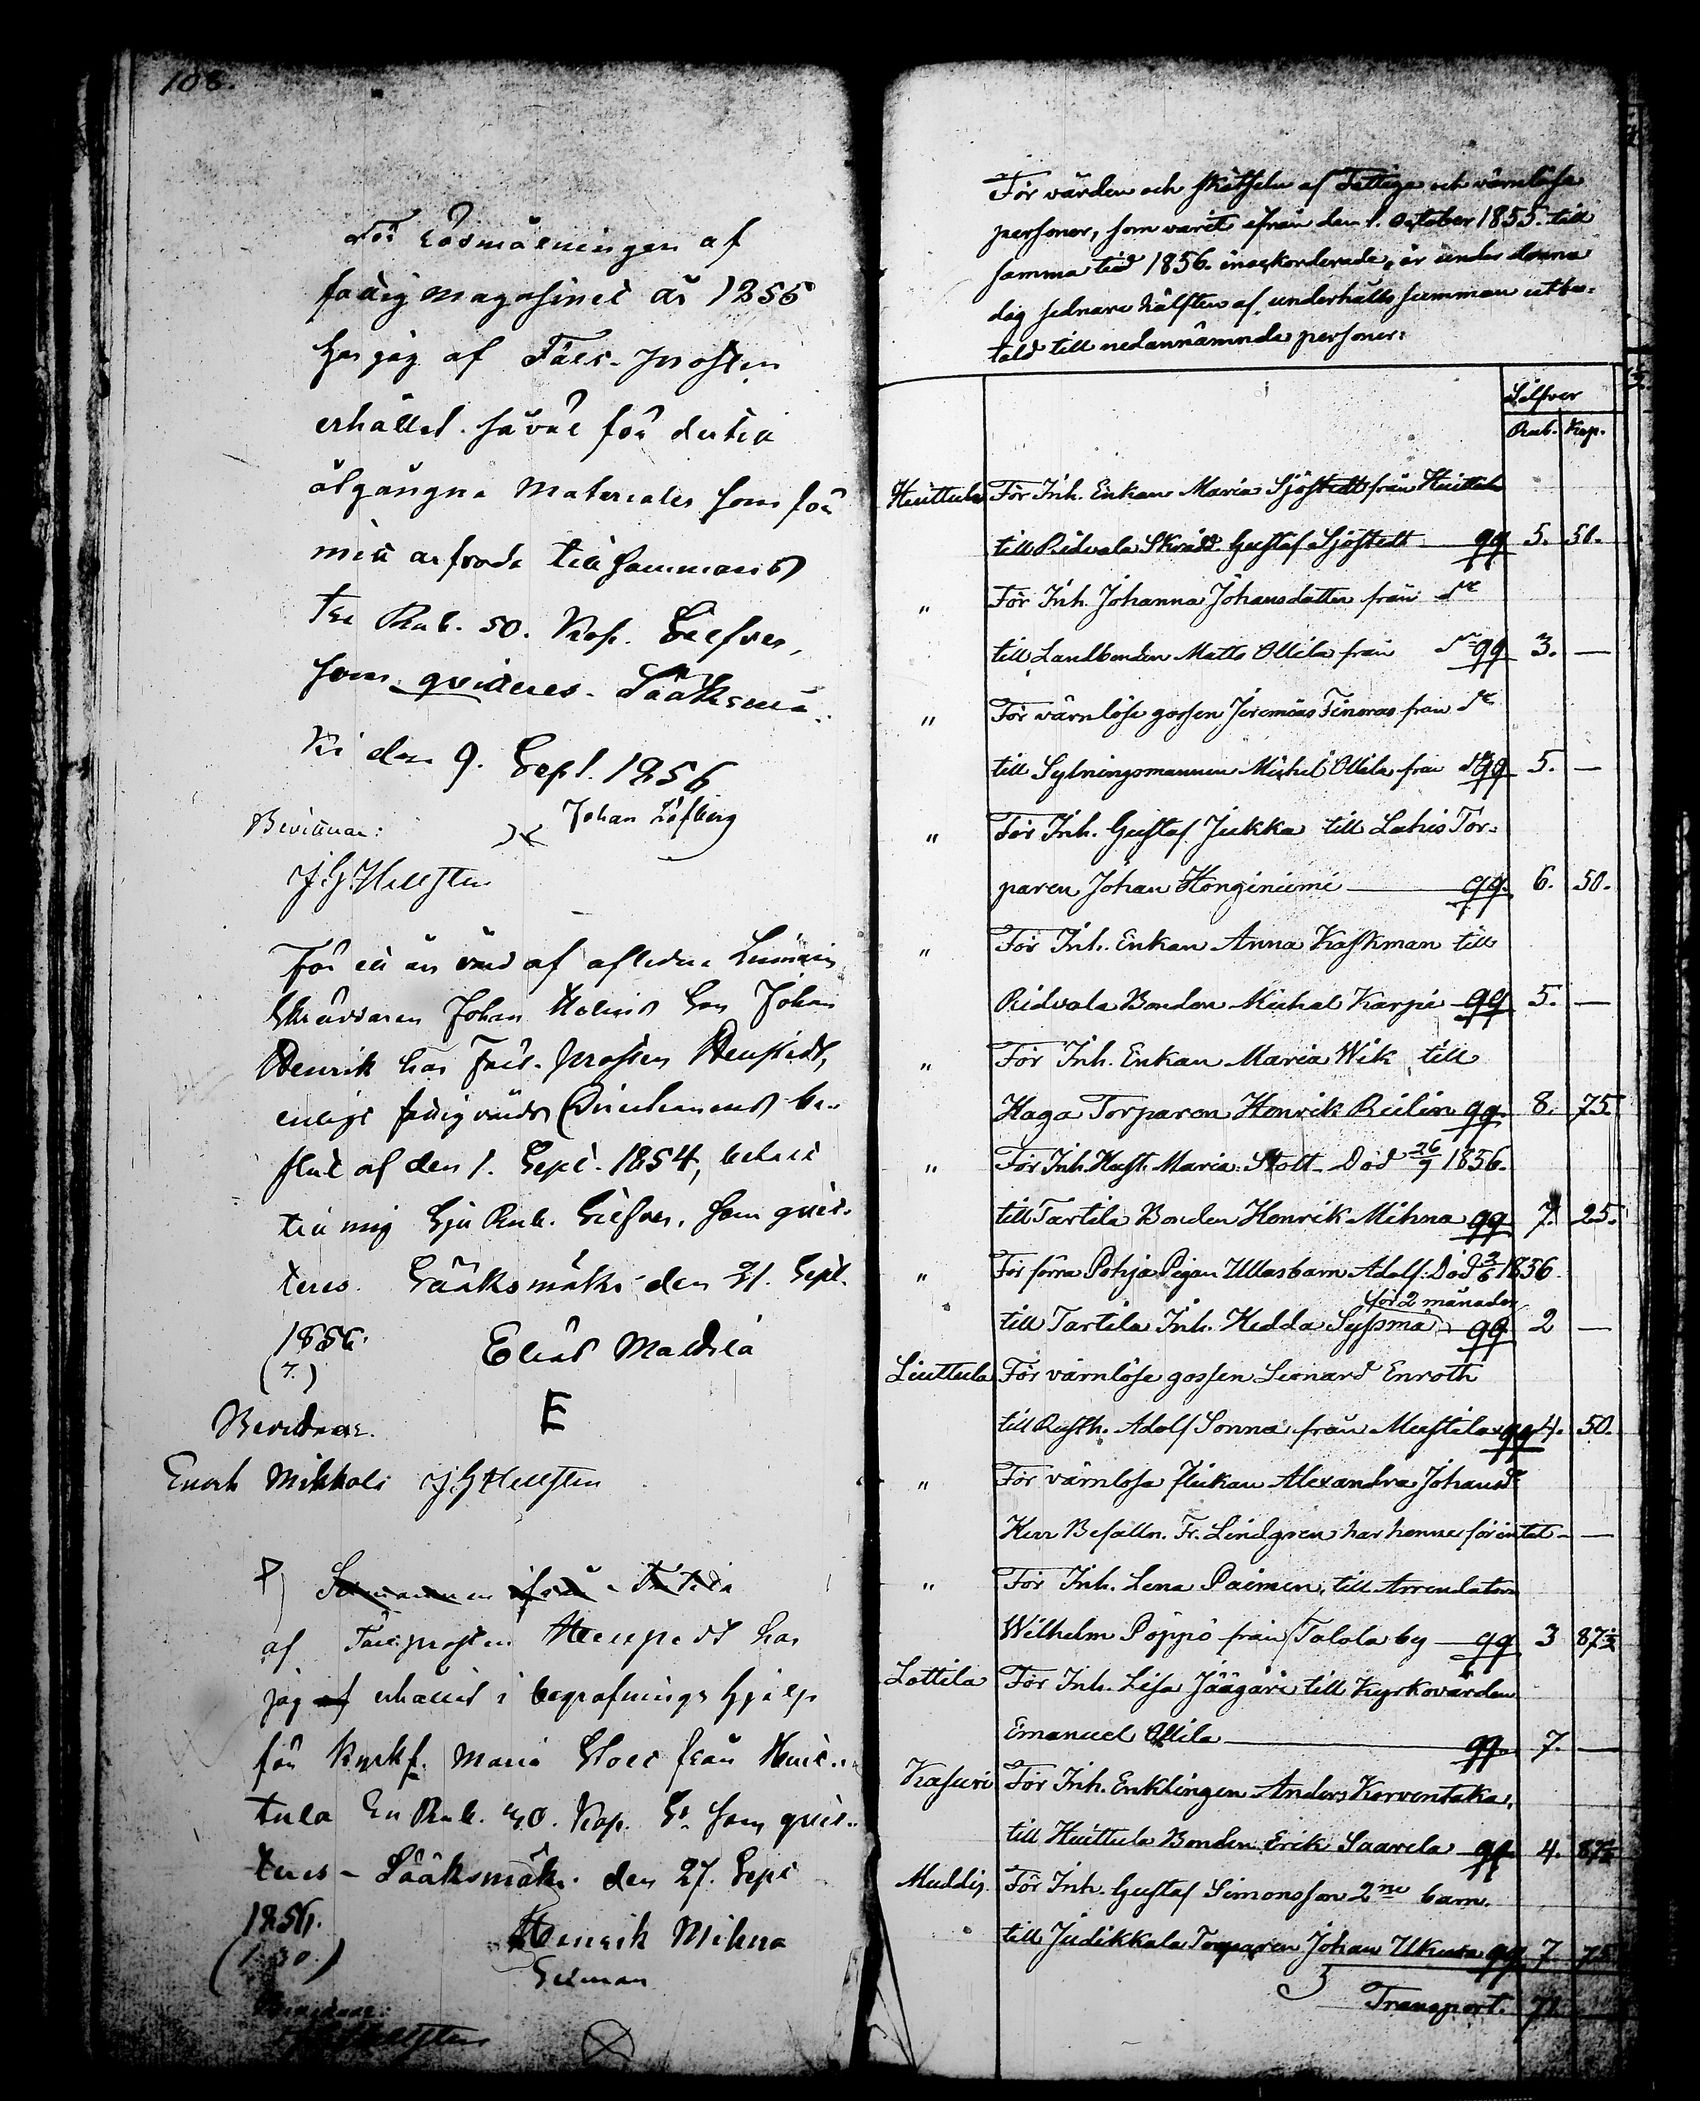 108.
För Rödmålningen af
fattig magasinet år 1855
har jag af Fält-Prosten
erhållit såväl för dertill
åtgångne Materialer som för
mitt arfvode tillsammans
tre Rub. 50. Kop. Silfver,
som qvitteras. Sääksmä-
ki den 9. Sept. 1856
Johan Löfberg
Bevittnar:
J. G. Hellsten
För ett års vård af aflidne
Skräddaren Johan Malins Son Johan
Henrik har Fält-Prosten
enligt fattigvårds Directionens be-
slut af den 1. Sept. 1854, betalt
till mig Sju Rub. Silfver, som qvit-
teras. Sääksmäki den 21. Sept.
1856.
(7.)
Elias Mattila
E
Bevittnar.
Enoch Mikkola J. G. Hellsten
af Fältprosten har
jag af erhållit i begrafningshjelp
för Maria Stolt från Huit-
tula En Rub. 30. Kop. Sr. som qvit-
teras - Sääksmäki den 27. Sept
1856.
(1.30.)
Henrik Mihna
Bevittnar:
J. G. Hellsten
För vården och skötseln af Fattige och värnlösa
personer, som varit ifrån den 1. October 1855. till
samma tid 1856. inackorderade, är under denna
dag sednare hälften af underhålls summan utbe-
tald till nedannämnde personer:
Silfver
Rub. Kop.
Huittula För Inh. Enkan Maria Sjöstedt från Huittula
till Ridvala Skrädd. Gustaf Sjöstedt qq 5. 50.
" För Inh. Johanna Johansdotter från do
till Landbonden Matts Ollila från do qq 3. —
" För värnlöse gossen Jeremias Tenoras från do
till Sytningsmannen Michel Ollila från do qq 5. —
" För Inh. Gustaf Jukka till Lahis Tor-
paren Johan Honginiemi qq. 6. 50.
" För Inh. Enkan Anna Kaskman till
Ridvala Bonden Michel Karpi qq 5. —
" För Inh. Enkan Maria Wik till
Haga Torparen Henrik Relin qq. 8. 75
" För Inh. Hust. Maria Stolt. Död 26/9 1856.
till Tarttila Bonden Henrik Mihna qq 7. 25.
" För förra Pohja Pigan Ullas barn Adolf: Död 3/6 1856.
för 2 månader
till Tarttila Inh. Hedda Syssmä qq. 2 —
Liuttula För värnlöse gossen Leonard Enroth
till Rusth. Adolf Sonna från Mustila qq 4. 50.
" För värnlösa flickan Alexandra Johansdr
Herr Befalln. Fr. Lindgren har henne för intet — —
" För Inh. Lena Paimen, till Arrendatorn
Wilhelm Poppo från Talola by qq 3 87½
Lottila För Inh. Lisa Jäägäri till Kyrkovärden
Emanuel Ollila qq. 7. —
Kasuri För Inh. Enklingen Anders Korventaka,
till Huittula Bonden Erik Saarela qq. 4. 87½
Muddis För Inh. Gustaf Simonsson 2ne barn.
till Judikkala Torparen Johan Ukura qq 7. 75
Transport. 71